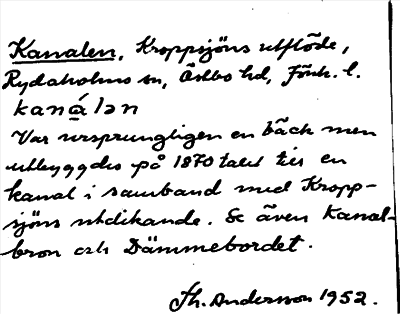 Kanalen, Kroppsjöns utflöde,
Rydaholms sn, Östbo hd, Jönk. l.
kanálən
Var ursprungligen en bäck men
utbyggdes på 1870 talet till en
kanal i samband med Kropp-
sjöns utdikande. Se även Kanal-
bron och Dämmebordet.
Th. Andersson 1952.